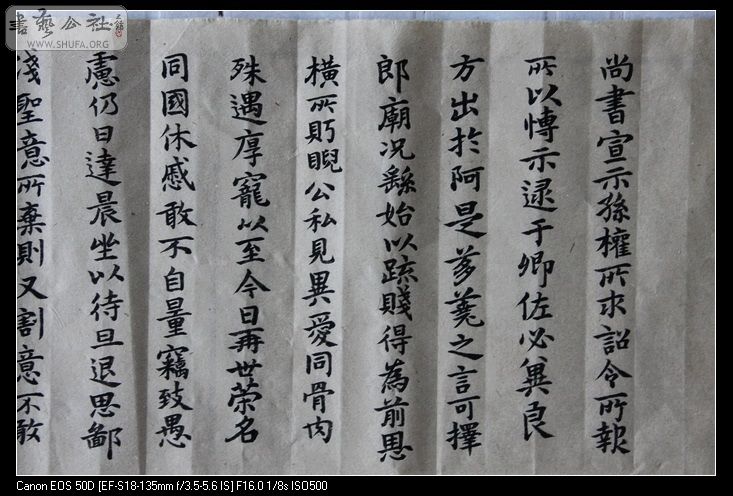 書藝公社
WWW.SHUFA.ORG
尚書宣示孫權所求詔令所報
所以愽示逮于卿佐必冀良
方出於阿是芻蕘之言可擇
郎廟况繇始以疏賤得為前恩
橫所眄睨公私見異愛同骨肉
殊遇厚寵以至今日再世荣名
同國休慼敢不自量竊致愚
慮仍日達晨坐以待旦退思鄙
淺聖意所棄則又割意不敢
Canon EOS 50D [EF-S18-135mm f/3.5-5.6 IS] F16.0 1/8s ISO500